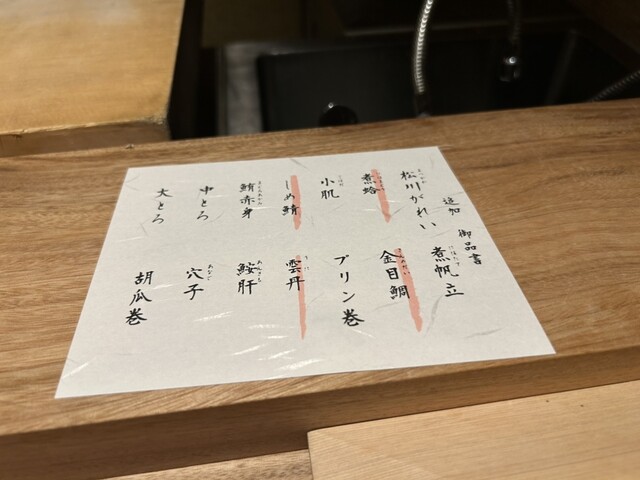 追加 御品書
松川がれい
煮蛤
小肌
しめ鯖
鮪赤身
中とろ
大とろ
煮帆立
金目鯛
プリン巻
雲丹
鮟肝
穴子
胡瓜巻